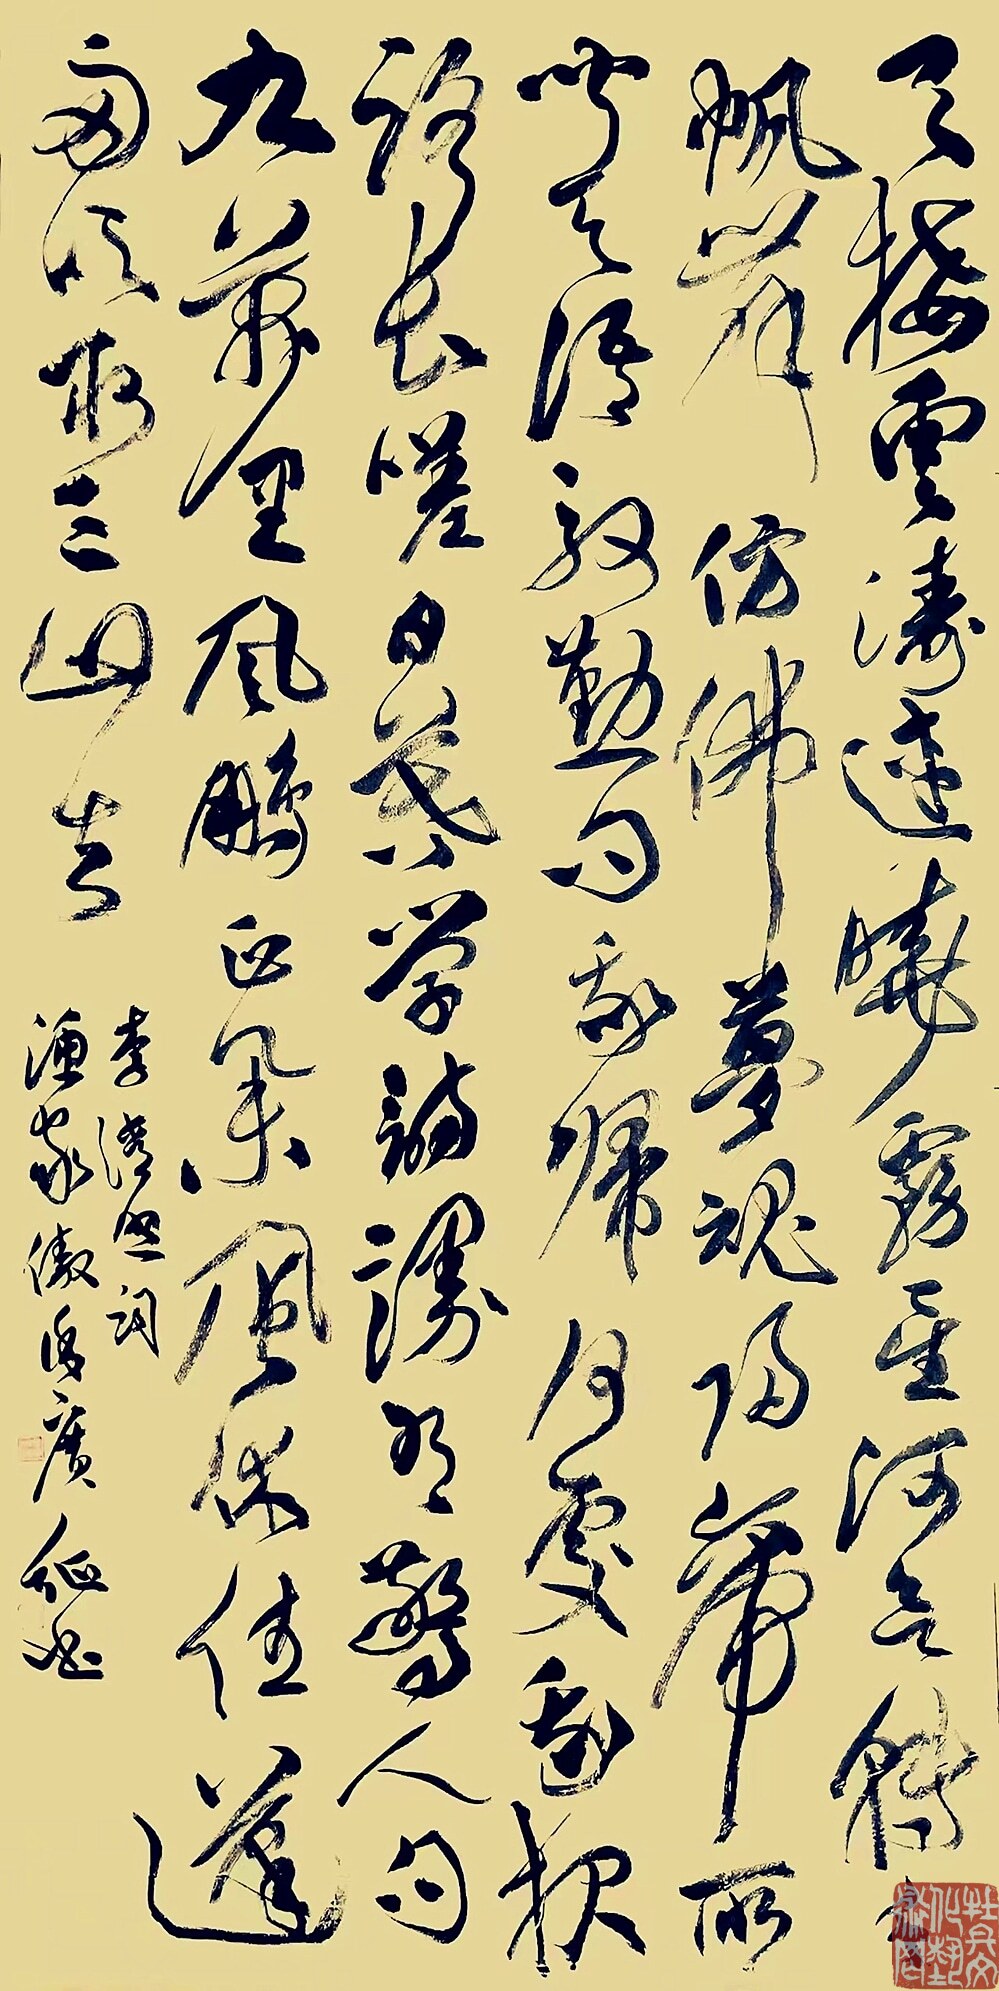 天接雲濤連曉霧星河欲轉千
帆舞仿佛夢魂歸帝所
聞天語殷勤問我歸何處我報
路長嗟日暮學詩謾有驚人句
九萬里風鵬正舉風休住蓬
舟吹取三山去
李清照詞
漁家傲